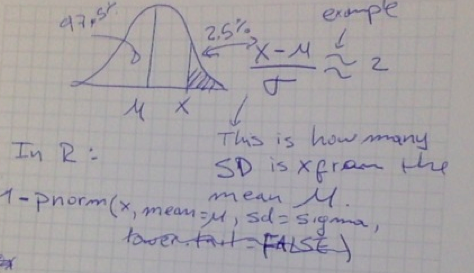 example
97.5%
2.5%
x - μ
σ
≈ 2
μ x
This is how many
SD is x from the
mean μ.
In R:
1-pnorm(x, mean=μ, sd=sigma,
lower.tail=FALSE)